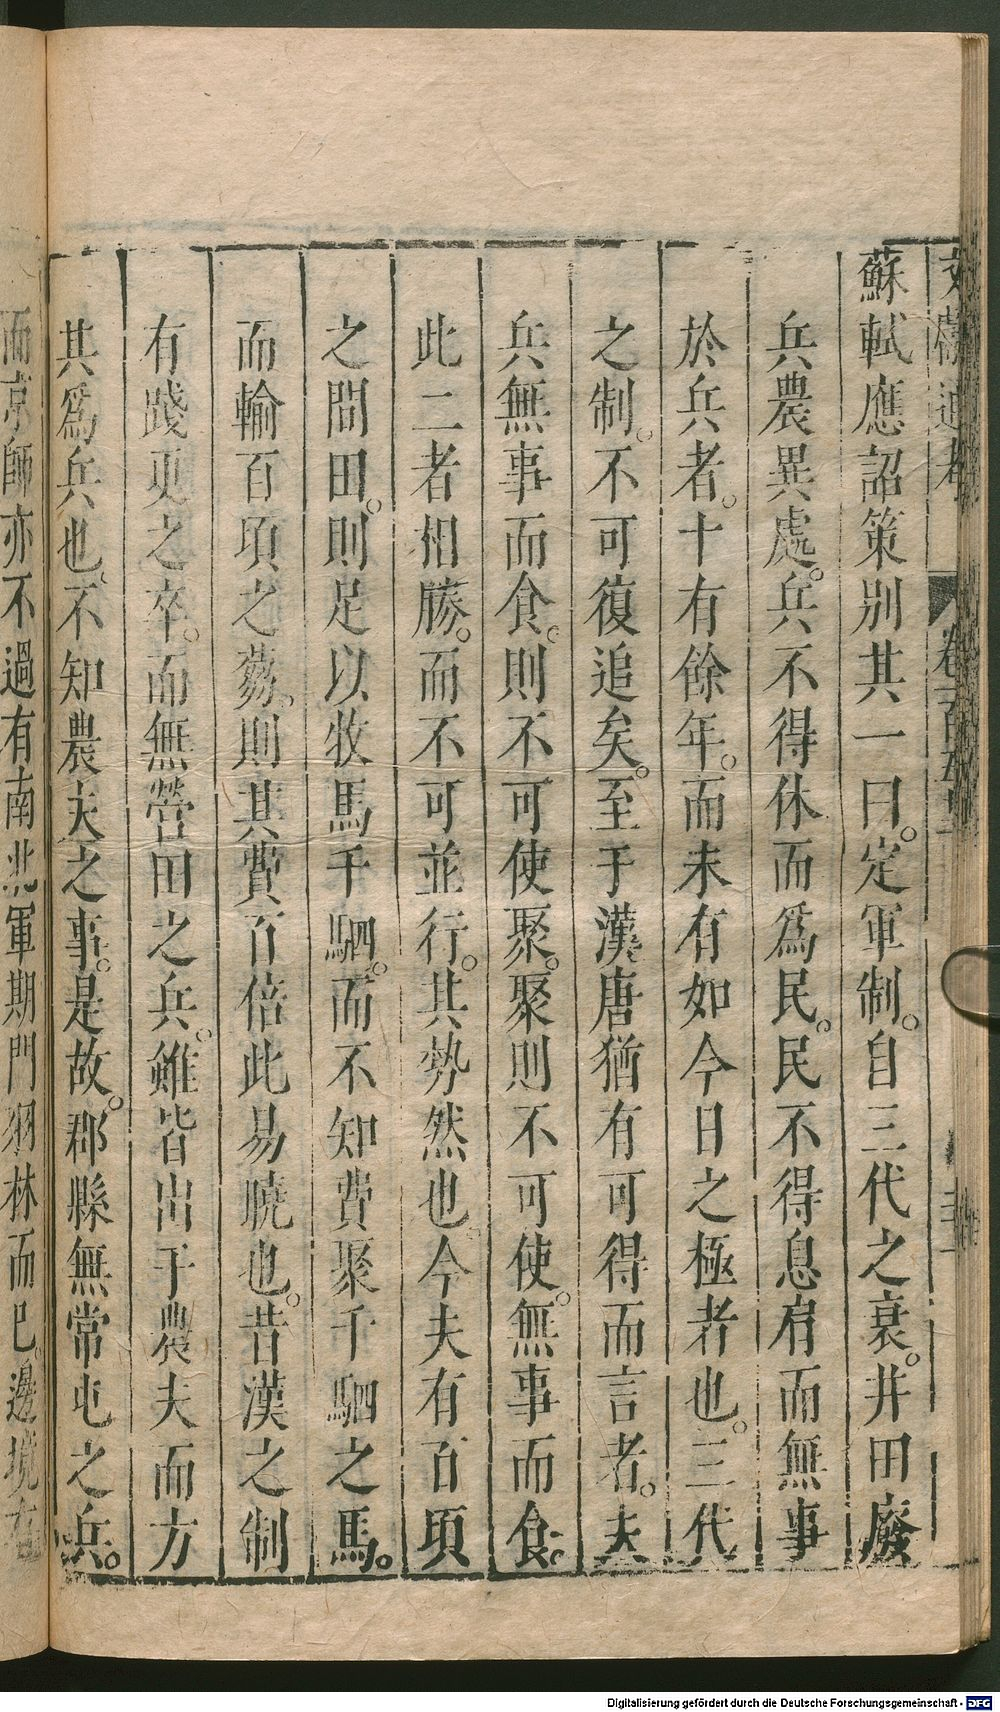 文獻通考 卷一百五十
蘇軾應詔策别其一曰。定軍制。自三代之衰。井田廢
兵農異處。兵不得休而爲民。民不得息肩而無事
於兵者。十有餘年。而未有如今日之極者也。三代
之制。不可復追矣。至于漢唐猶有可得而言者。夫
兵無事而食。則不可使聚。聚則不可使無事而食。
此二者相勝。而不可並行。其勢然也。今夫有百頃
之間田。則足以牧馬千駟。而不知費聚千駟之馬。
而輸百頃之蒭。則其費百倍此易曉也。昔漢之制
有踐更之卒。而無營田之兵。雖皆出于農夫而方
其爲兵也。不知農夫之事。是故。郡縣無常屯之兵。
而京師亦不過有南北軍期門羽林而已。邊境有
Digitalisierung gefördert durch die Deutsche Forschungsgemeinschaft - DFG